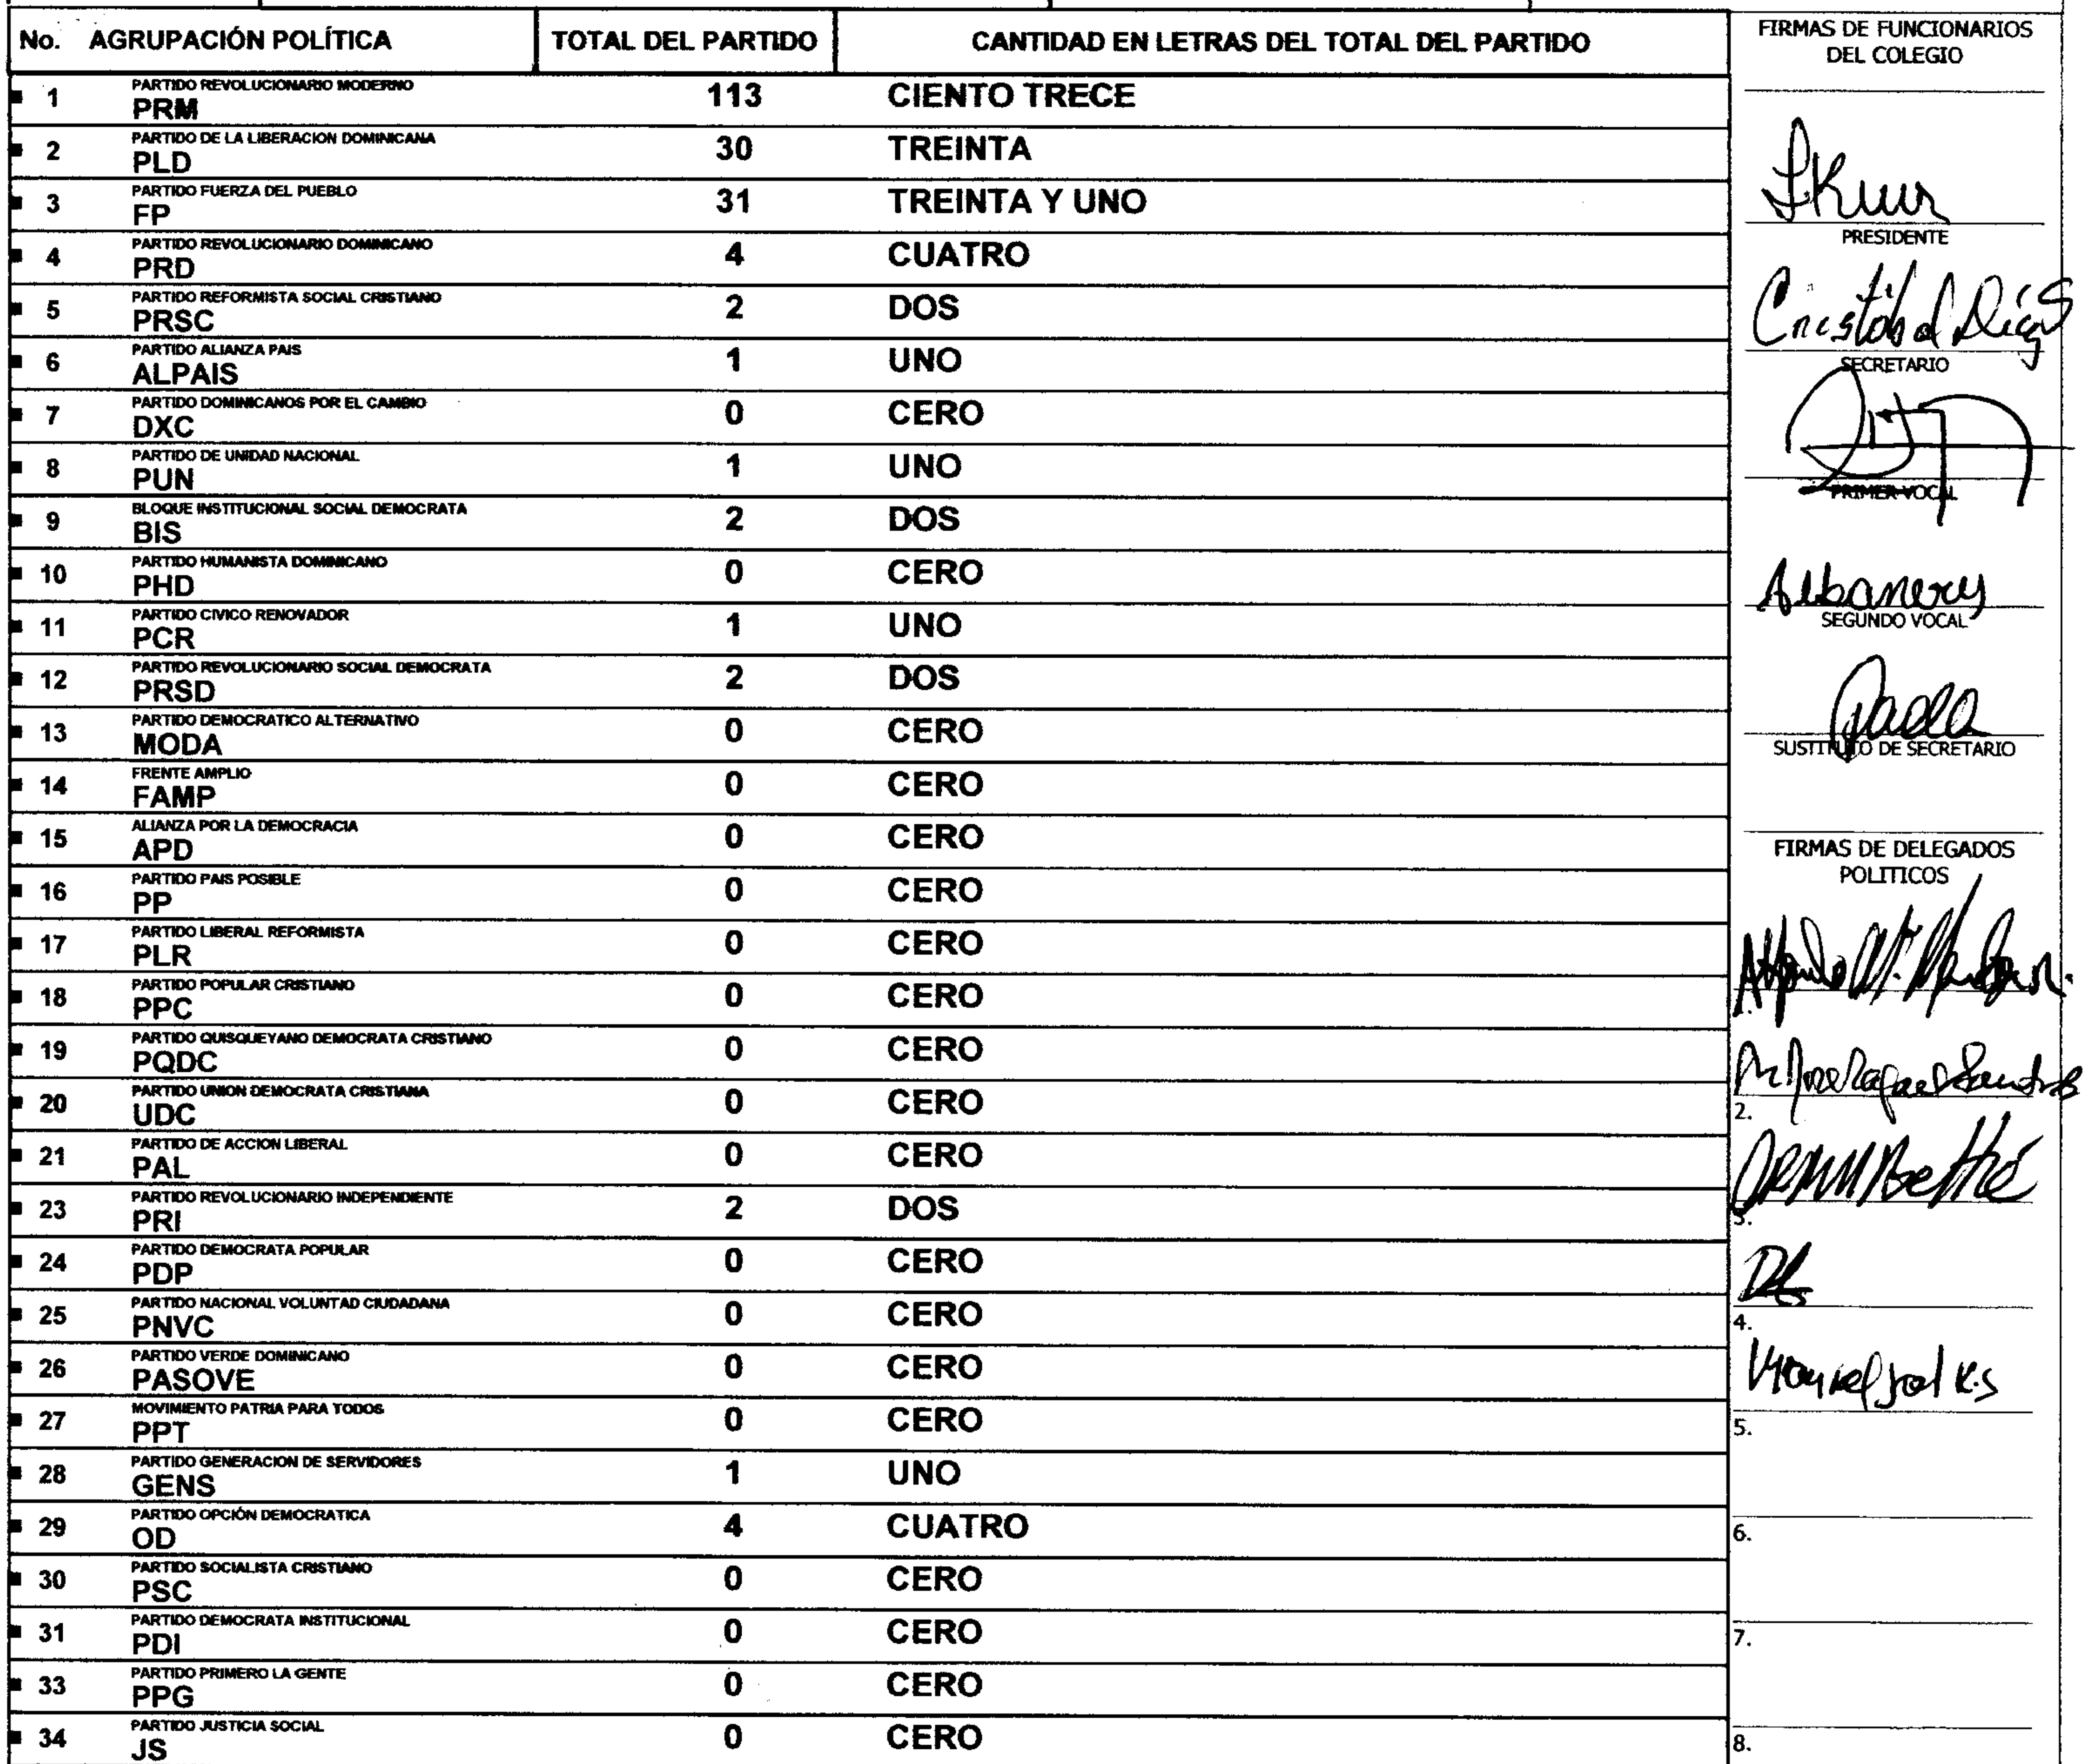 No. AGRUPACIÓN POLÍTICA TOTAL DEL PARTIDO CANTIDAD EN LETRAS DEL TOTAL DEL PARTIDO
PARTIDO REVOLUCIONARIO MODERNO
1 PRM 113 CIENTO TRECE
PARTIDO DE LA LIBERACION DOMINICANA
2 PLD 30 TREINTA
PARTIDO FUERZA DEL PUEBLO
3 FP 31 TREINTA Y UNO
PARTIDO REVOLUCIONARIO DOMINICANO
4 PRD 4 CUATRO
PARTIDO REFORMISTA SOCIAL CRISTIANO
5 PRSC 2 DOS
PARTIDO ALIANZA PAIS
6 ALPAIS 1 UNO
PARTIDO DOMINICANOS POR EL CAMBIO
7 DXC 0 CERO
PARTIDO DE UNIDAD NACIONAL
8 PUN 1 UNO
BLOQUE INSTITUCIONAL SOCIAL DEMOCRATA
9 BIS 2 DOS
PARTIDO HUMANISTA DOMINICANO
10 PHD 0 CERO
PARTIDO CIVICO RENOVADOR
11 PCR 1 UNO
PARTIDO REVOLUCIONARIO SOCIAL DEMOCRATA
12 PRSD 2 DOS
PARTIDO DEMOCRATICO ALTERNATIVO
13 MODA 0 CERO
FRENTE AMPLIO
14 FAMP 0 CERO
ALIANZA POR LA DEMOCRACIA
15 APD 0 CERO
PARTIDO PAIS POSIBLE
16 PP 0 CERO
PARTIDO LIBERAL REFORMISTA
17 PLR 0 CERO
PARTIDO POPULAR CRISTIANO
18 PPC 0 CERO
PARTIDO QUISQUEYANO DEMOCRATA CRISTIANO
19 PQDC 0 CERO
PARTIDO UNION DEMOCRATA CRISTIANA
20 UDC 0 CERO
PARTIDO DE ACCION LIBERAL
21 PAL 0 CERO
PARTIDO REVOLUCIONARIO INDEPENDIENTE
23 PRI 2 DOS
PARTIDO DEMOCRATA POPULAR
24 PDP 0 CERO
PARTIDO NACIONAL VOLUNTAD CIUDADANA
25 PNVC 0 CERO
PARTIDO VERDE DOMINICANO
26 PASOVE 0 CERO
MOVIMIENTO PATRIA PARA TODOS
27 PPT 0 CERO
PARTIDO GENERACION DE SERVIDORES
28 GENS 1 UNO
PARTIDO OPCIÓN DEMOCRATICA
29 OD 4 CUATRO
PARTIDO SOCIALISTA CRISTIANO
30 PSC 0 CERO
PARTIDO DEMOCRATA INSTITUCIONAL
31 PDI 0 CERO
PARTIDO PRIMERO LA GENTE
33 PPG 0 CERO
PARTIDO JUSTICIA SOCIAL
34 JS 0 CERO
FIRMAS DE FUNCIONARIOS
DEL COLEGIO
PRESIDENTE
Cristobal Díaz
SECRETARIO
PRIMER VOCAL
Albanery
SEGUNDO VOCAL
SUSTITUTO DE SECRETARIO
FIRMAS DE DELEGADOS
POLITICOS
1.
Rafael
2.
3.
4.
5.
6.
7.
8.